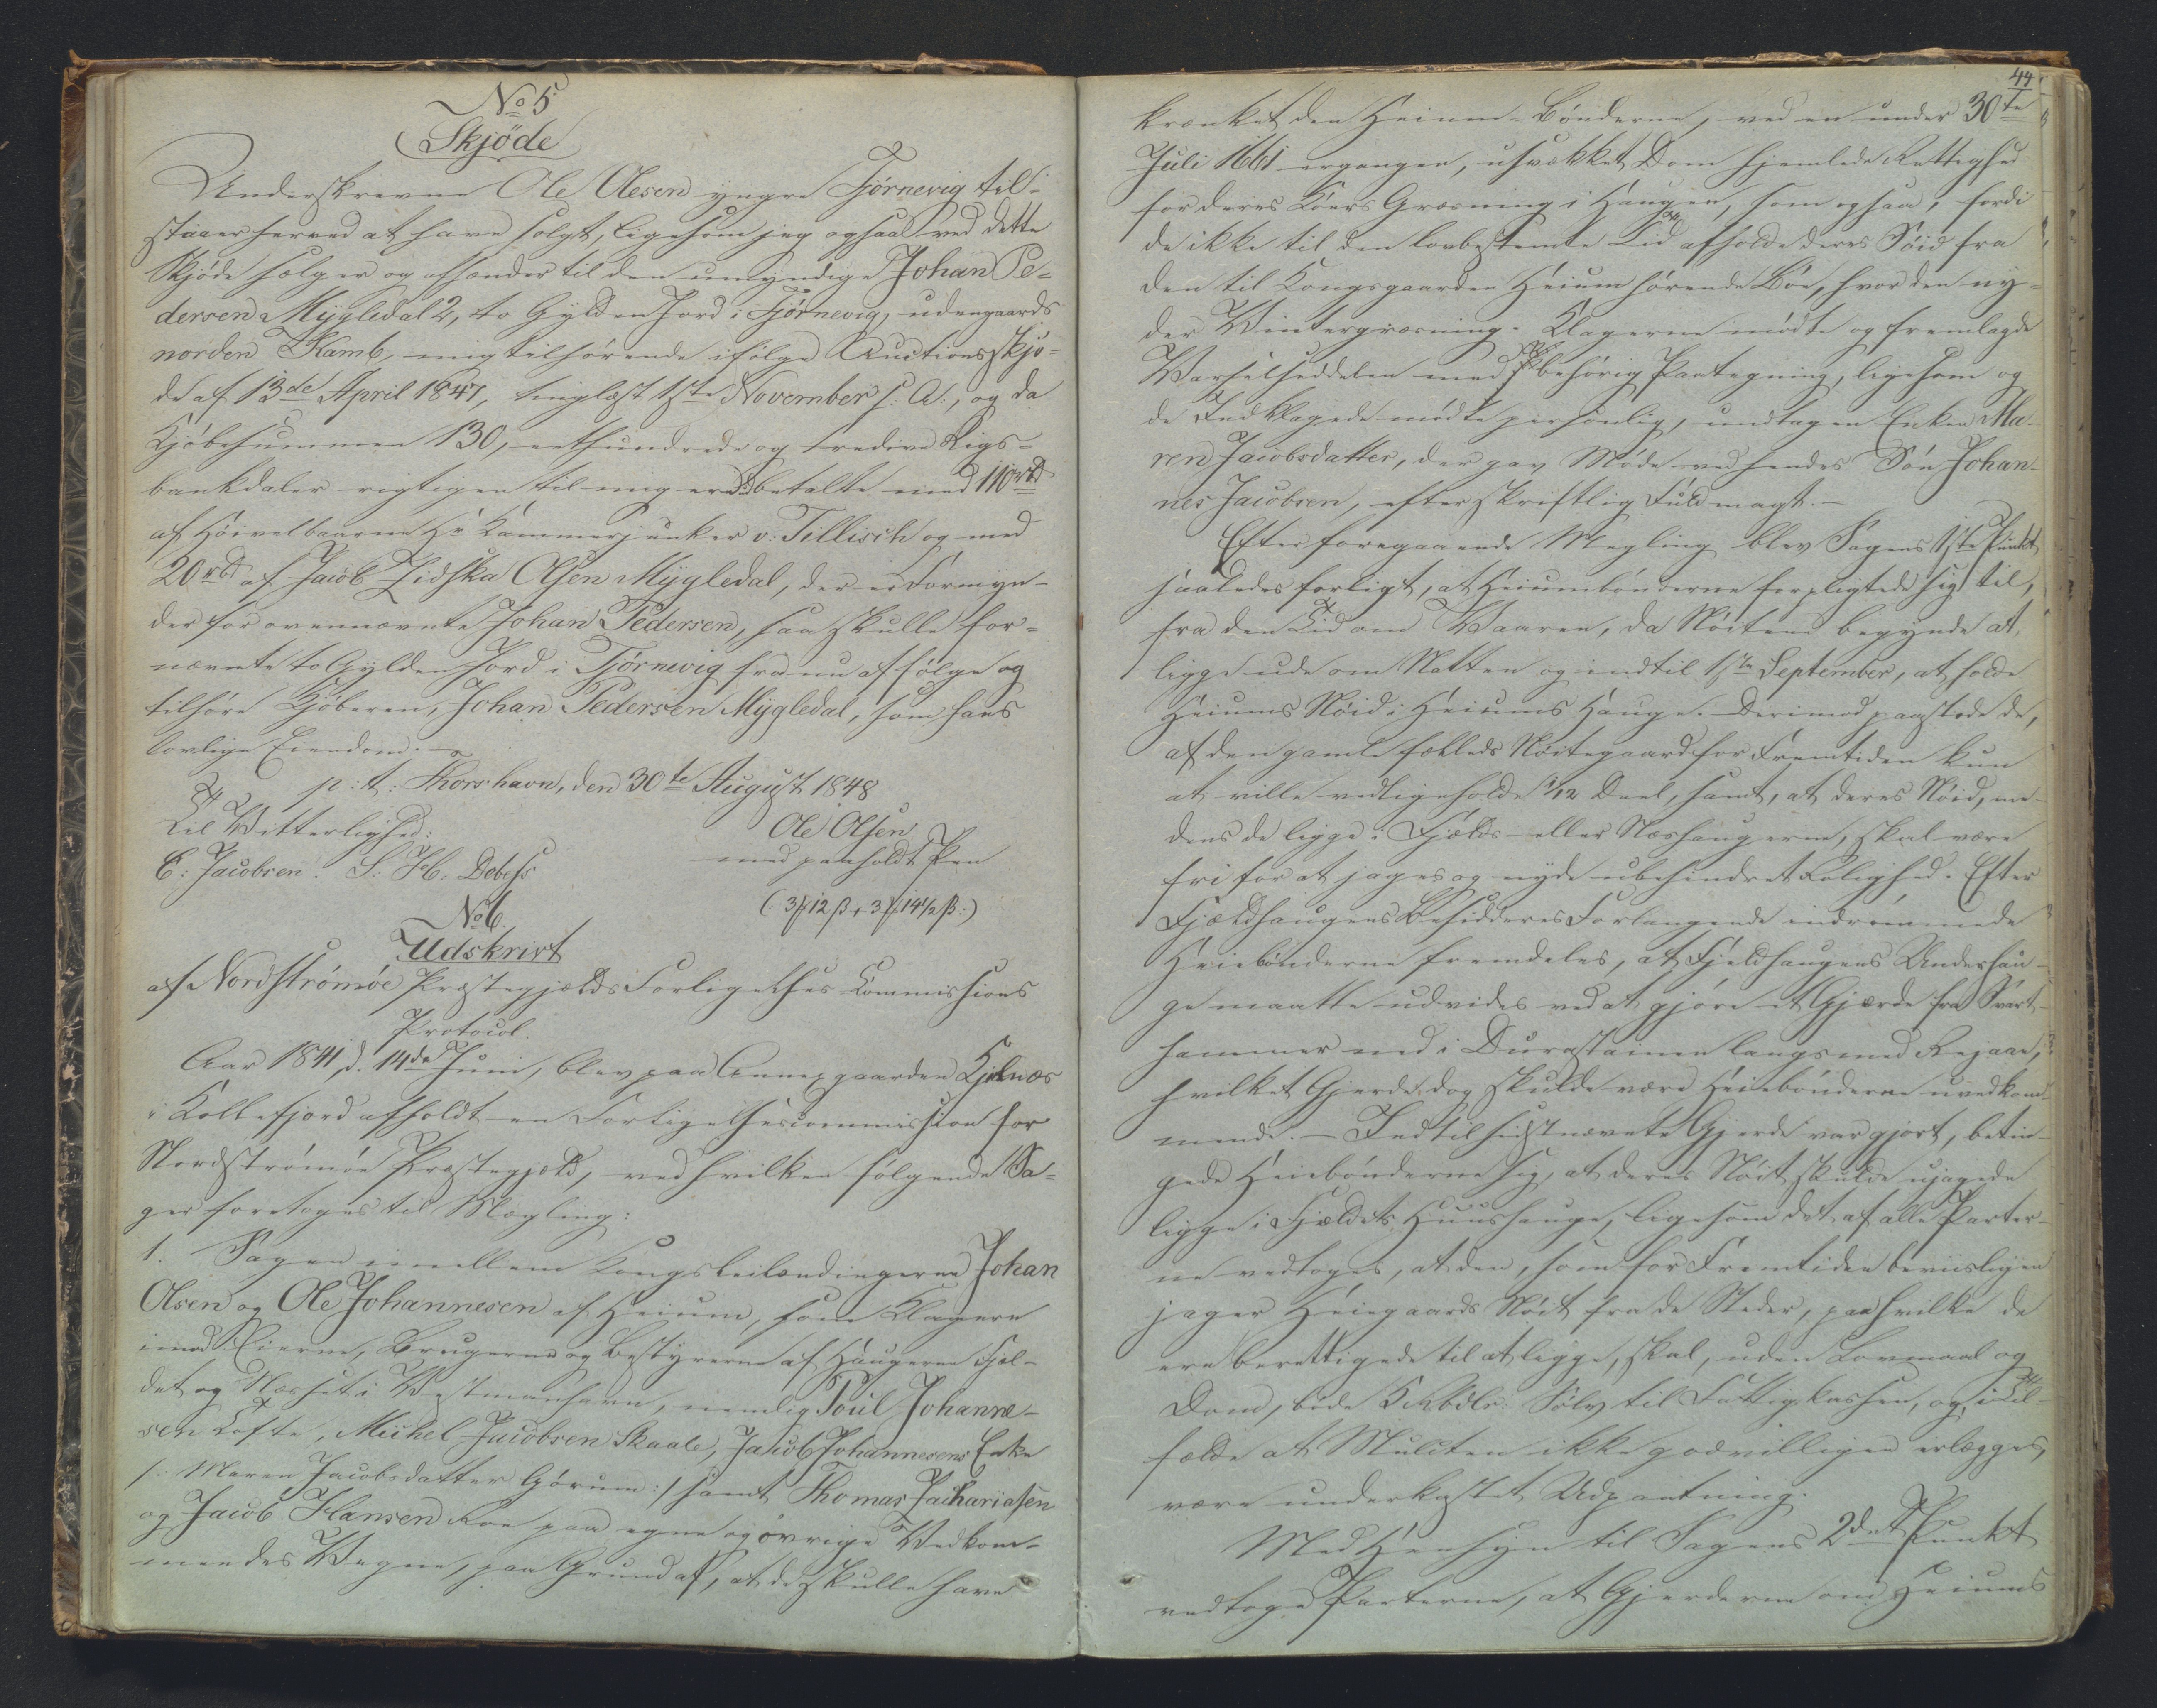 No 5
Skjøde
Underskrevne Ole Olesen yngre Tjørnevig til-
staaer herved at have solgt, ligesom jeg ogsaa ved dette
Skjøde sælger og afhænder til den umyndige Johan Pe-
dersen Mygledal 2, to Gylden Jord i Tjørnevig, udengaards
norden Kamb, mig tilhørende ifølge Auctionsskjø-
de af 13de April 1847, tinglæst 1ste November s. A., og da
Kjøbesummen 130, eethundrede og tredive Rigs-
bankdaler rigtigen til mig ere betalte med 110 rbd
af Høivelbaarne Hr Kammerjunker v: Tillisch og med
20 rbd af Jacob Zidska Olsen Mygledal, der er Formyn-
der for ovennævnte Johan Pedersen, saa skulle for-
nævnte to Gylden Jord i Tjørnevig fra nu af følge og
tilhøre Kjøberen, Johan Pedersen Mygledal, som hans
lovlige Eiendom. —
p: t: Thorshavn, den 30te August 1848
Til Vitterlighed: Ole Olsen
E: Jacobsen. S: H: Debess med paaholdt Pen
(3 12 ß + 3 14½ ß:)
No 6.
Udskrivt
af Nordstrømøe Præstegjelds Forligelses-Commissions
Protocol.
Aar 1841, d. 14de Juni, blev paa Annexgaarden Kjelnæs
i Kollefjord afholdt en Forligelsescommission for
Nordstrømøe Præstegjeld, ved hvilken følgende Sa-
ger foretoges til Mægling:
1. Sagen imellem Kongsleilændingerne Johan
Olsen og Ole Johannesen af Heium, som Klagere
imod Eierne, Brugerne og Bestyrerne af Haugerne Fjel-
det og Næsset i Vestmanhavn, nemlig Poul Johanne-
sen Lofte, Michel Jacobsen Skaale, Jacob Johannesens Enke
/: Maren Jacobsdatter Gørum :/ samt Thomas Zachariasen
og Jacob Hansen Roe paa egne og øvrige Vedkom-
mendes Vegne, paa Grund af, at de skulle have
44
krænket den Heium-Bønderne, ved en under 30te
Juli 1661 ergangen, usvækket Dom hjemlede Rettighed
for deres Køers Græsning i Haugen, som ogsaa, fordi
de ikke til den lovbestemte Tid afholde deres Nøid fra
den til Kongsgaarden Heium hørende Bøe, hvor den ny-
der Vintergræsning. Klagerne mødte og fremlagde
Varselseddelen med behørig Paategning, ligesom og
de Indklagede mødte personlig, undtagen Enken Ma-
ren Jacobsdatter, der gav Møde ved hendes Søn Johan-
nes Jacobsen, efter skriftlig Fuldmagt. —
Efter foregaaende Mægling blev Sagens 1ste Punkt
saaledes forligt, at Heiumbønderne forpligtede sig til,
fra den Tid om Vaaren, da Nøitene begynde at
ligge ude om Natten og indtil 1ste September, at holde
Heiums Nøid i Heiums Hauge. Derimod paastode de,
af den gamle fælleds Nøitegaard for Fremtiden kun
at ville vedligeholde 1/12 Deel, samt, at deres Nøid, me-
dens de ligge i Fjelds- eller Næshaugerne, skal være
fri for at jages og nyde ubehindret Rolighed. Efter
Fjeldhaugens Besidderes Forlangende indrømmede
Heiebønderne fremdeles, at Fjeldhaugens Underhau-
ge maatte udvides ved at gjøre et Gjærde fra Svart-
hammer ned i Durastainen langs med Rejaae,
hvilket Gjerde dog skulde være Heiebønderne uvedkom-
mende. — Indtil sidstnævnte Gjerde var gjort, betin-
gede Heiebønderne sig, at deres Nøit skulde ujagede
ligge i Fjeldets Huushauge, ligesom det af alle Parter-
ne vedtoges, at den, som for Fremtiden beviisligen
jager Heiegaards Nøit fra de Steder, paa hvilke de
ere berettigede til at ligge, skal, uden Lovmaal og
Dom, bøde 5 Rbdlr. Sølv til Fattigkassen, og, i Til-
fælde at Mulcten ikke godvilligen erlægges,
være underkastet Udpantning.
Med Hensyn til Sagens 2det Punkt
vedtoge Parterne, at Gjerderne om Heiums